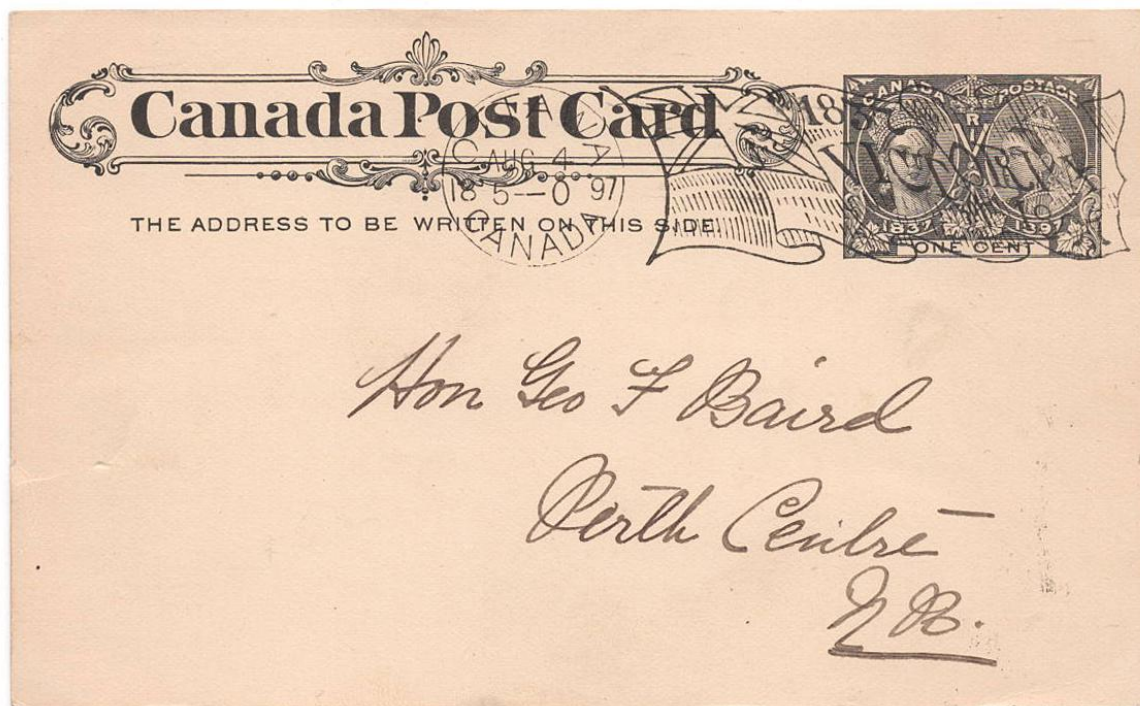 Canada Post Card
THE ADDRESS TO BE WRITTEN ON THIS SIDE.
OTTAWA
AUG 4
18 5--0 97
CANADA
1837
VICTORIA
CANADA POSTAGE
V R I
1837 1897
ONE CENT
Hon Geo F Baird
Perth Centre
N B.